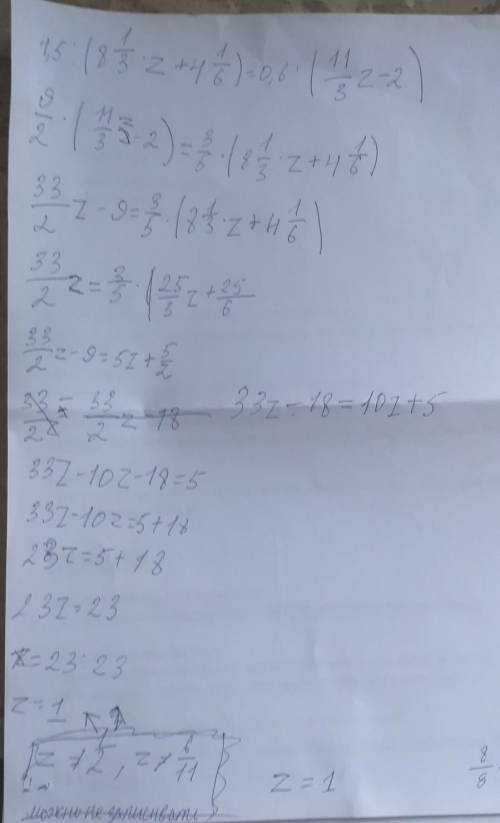 4,5 · (8 1/3 · z + 4 1/6) = 0,6 · (11/3 z - 2)
9/2 · (11/3 z - 2) = 3/5 · (8 1/3 · z + 4 1/6)
33/2 z - 9 = 3/5 · (8 1/3 · z + 4 1/6)
33/2 z = 3/5 · (25/3 z + 25/6
33/2 z - 9 = 5z + 5/2
33/2 z - 18 33z - 18 = 10z + 5
33z - 10z - 18 = 5
33z - 10z = 5 + 18
23z = 5 + 18
23z = 23
z = 23 : 23
z = 1
z ≠ , z ≠ 6/11
z = 1
8/8
можно не записывать